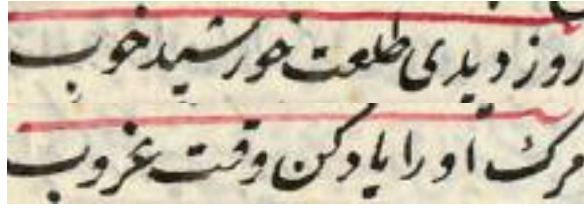 روز دیدی طلعت خورشید خوب
مرک او را یاد کن وقت غروب